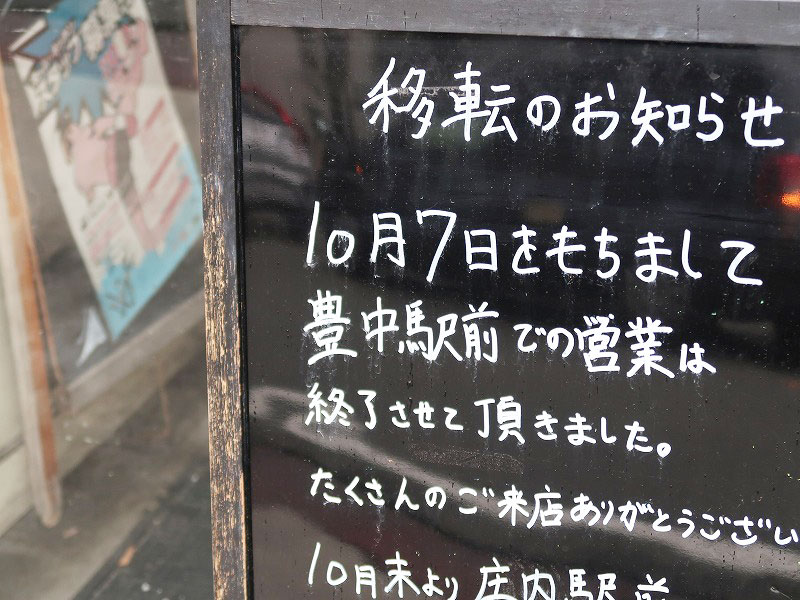 移転のお知らせ
10月7日をもちまして
豊中駅前での営業は
終了させて頂きました。
たくさんのご来店ありがとうござい
10月末より庄内駅前